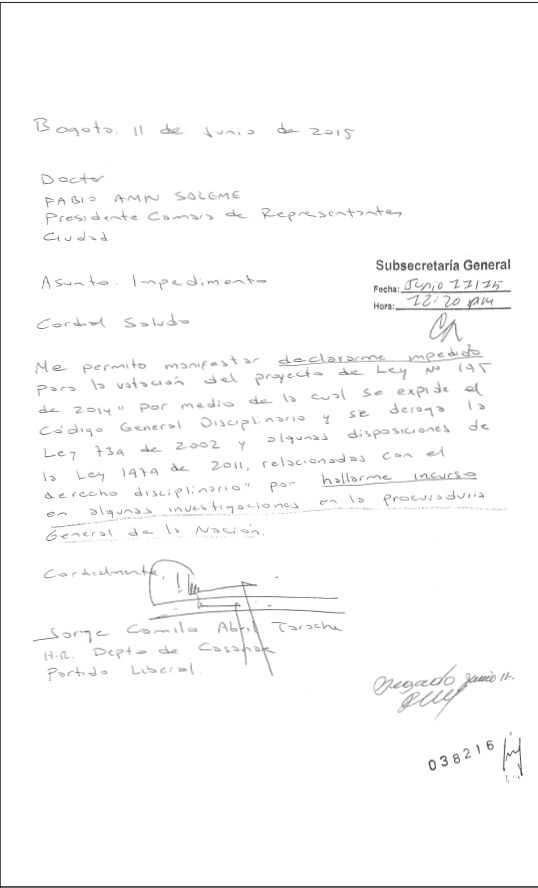 Bogota, 11 de Junio de 2015
Doctor
PABLO AMIN SALEME
Presidente Camara de Representantes
Ciudad
Subsecretaría General
Asunto. Impedimento
Fecha: Junio 11/15
Hora: 12:20 pm
Cordial Saludo
Me permito manifestar declararme impedido
para la votación del proyecto de Ley Nº 195
de 2014 "Por medio de la cual se expide el
Código General Disciplinario y se deroga la
Ley 734 de 2002 y algunas disposiciones de
la Ley 1474 de 2011, relacionadas con el
derecho disciplinario" por hallarme incurso
en algunas investigaciones en la Procuraduria
General de la Nación.
Cordialmente,
Jorge Camilo Abril Tarache
H.R. Depto de Casanare
Partido Liberal.
Negado Junio 11.
038216